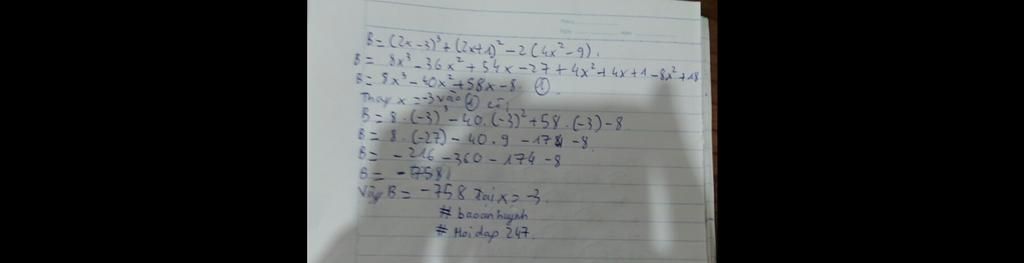 B = (2x-3)³ + (2x+1)² - 2(4x²-9).
B = 8x³ - 36x² + 54x - 27 + 4x² + 4x + 1 - 8x² + 18
B = 8x³ - 40x² + 58x - 8. ①
Thay x = -3 vào ① có:
B = 8.(-3)³ - 40.(-3)² + 58.(-3) - 8
B = 8.(-27) - 40.9 - 174 - 8
B = -216 - 360 - 174 - 8
B = -758
Vậy B = -758 tại x = -3.
# baoanhuynh
# Hoidap 247.